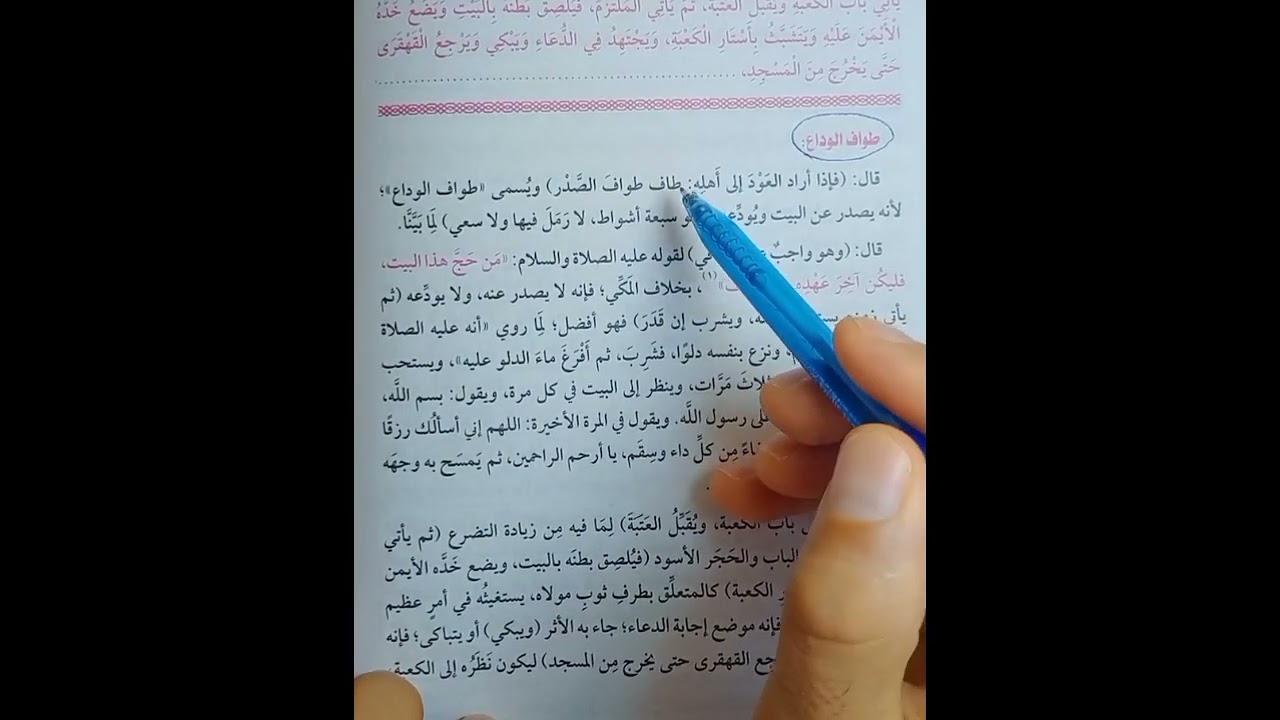 يأتي بَابَ الْكَعْبَةِ وَيُقَبِّلُ الْعَتَبَةَ، ثُمَّ يَأْتِي الْمُلْتَزَمَ، فَيُلْصِقُ بَطْنَهُ بِالْبَيْتِ وَيَضَعُ خَدَّهُ
الْأَيْمَنَ عَلَيْهِ وَيَتَشَبَّثُ بِأَسْتَارِ الْكَعْبَةِ، وَيَجْتَهِدُ فِي الدُّعَاءِ وَيَبْكِي وَيَرْجِعُ الْقَهْقَرَى
حَتَّى يَخْرُجَ مِنَ الْمَسْجِدِ.
طواف الوداع:
قال: (فإذا أراد العَوْدَ إلى أَهلِه: طاف طوافَ الصَّدْر) ويُسمى «طواف الوداع»؛
لأنه يصدر عن البيت ويُودِّع سبعة أشواط، لا رَمَلَ فيها ولا سعي) لِمَا بَيَّنَّا.
قال: (وهو واجبٌ لقوله عليه الصلاة والسلام: «مَن حَجَّ هذا البيت،
فليكُن آخِرَ عَهْدِه »(١)، بخلاف المَكِّي؛ فإنه لا يصدر عنه، ولا يودِّعه (ثم
يأتي ويشرب إن قَدَرَ) فهو أفضل؛ لِمَا روي «أنه عليه الصلاة
ونزع بنفسه دلوًا، فشَرِبَ، ثم أَفْرَغَ ماءَ الدلو عليه»، ويستحب
ثلاثَ مَرَّات، وينظر إلى البيت في كل مرة، ويقول: بسم اللَّه،
على رسول اللَّه. ويقول في المرة الأخيرة: اللهم إني أسألُك رزقًا
مِن كلِّ داء وسِقَم، يا أرحم الراحمين، ثم يَمسَح به وجهَه
بابَ الكعبة، ويُقَبِّلُ العَتَبَةَ) لِمَا فيه مِن زيادة التضرع (ثم يأتي
الباب والحَجَر الأسود (فيُلصِق بطنَه بالبيت، ويضع خَدَّه الأيمن
الكعبة) كالمتعلِّق بطرفِ ثوبِ مولاه، يستغيثُه في أمرٍ عظيم
فإنه موضع إجابة الدعاء؛ جاء به الأثر (ويبكي) أو يتباكى؛ فإنه
القهقرى حتى يخرج مِن المسجد) ليكون نَظَرُه إلى الكعبة